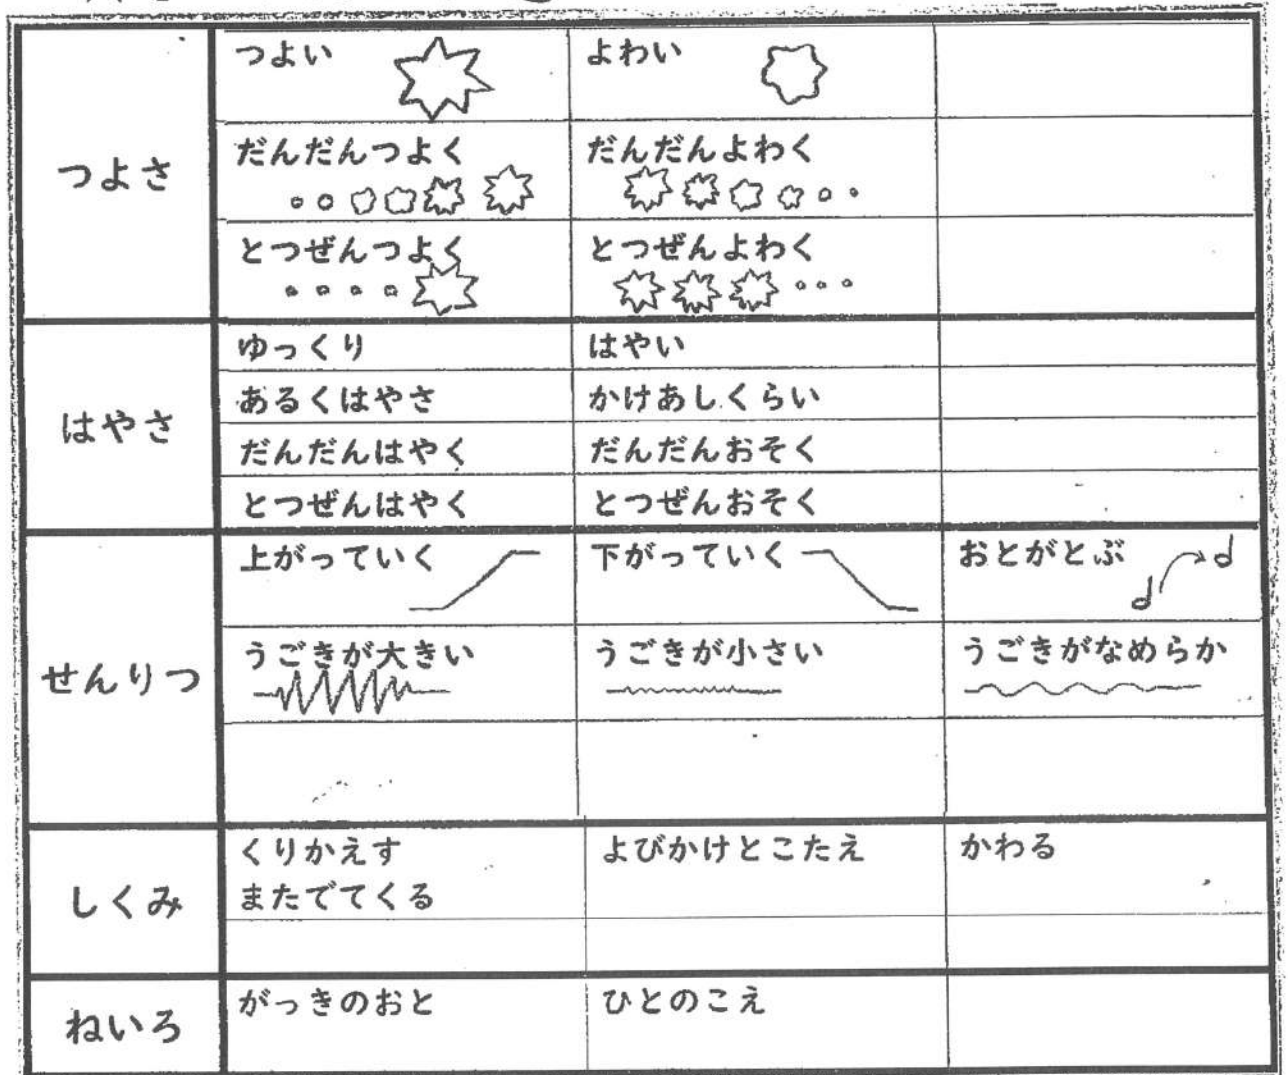 つよさ
つよい
よわい
だんだんつよく
だんだんよわく
とつぜんつよく
とつぜんよわく
はやさ
ゆっくり
はやい
あるくはやさ
かけあしくらい
だんだんはやく
だんだんおそく
とつぜんはやく
とつぜんおそく
せんりつ
上がっていく
下がっていく
おとがとぶ
うごきが大きい
うごきが小さい
うごきがなめらか
しくみ
くりかえす
またでてくる
よびかけとこたえ
かわる
ねいろ
がっきのおと
ひとのこえ